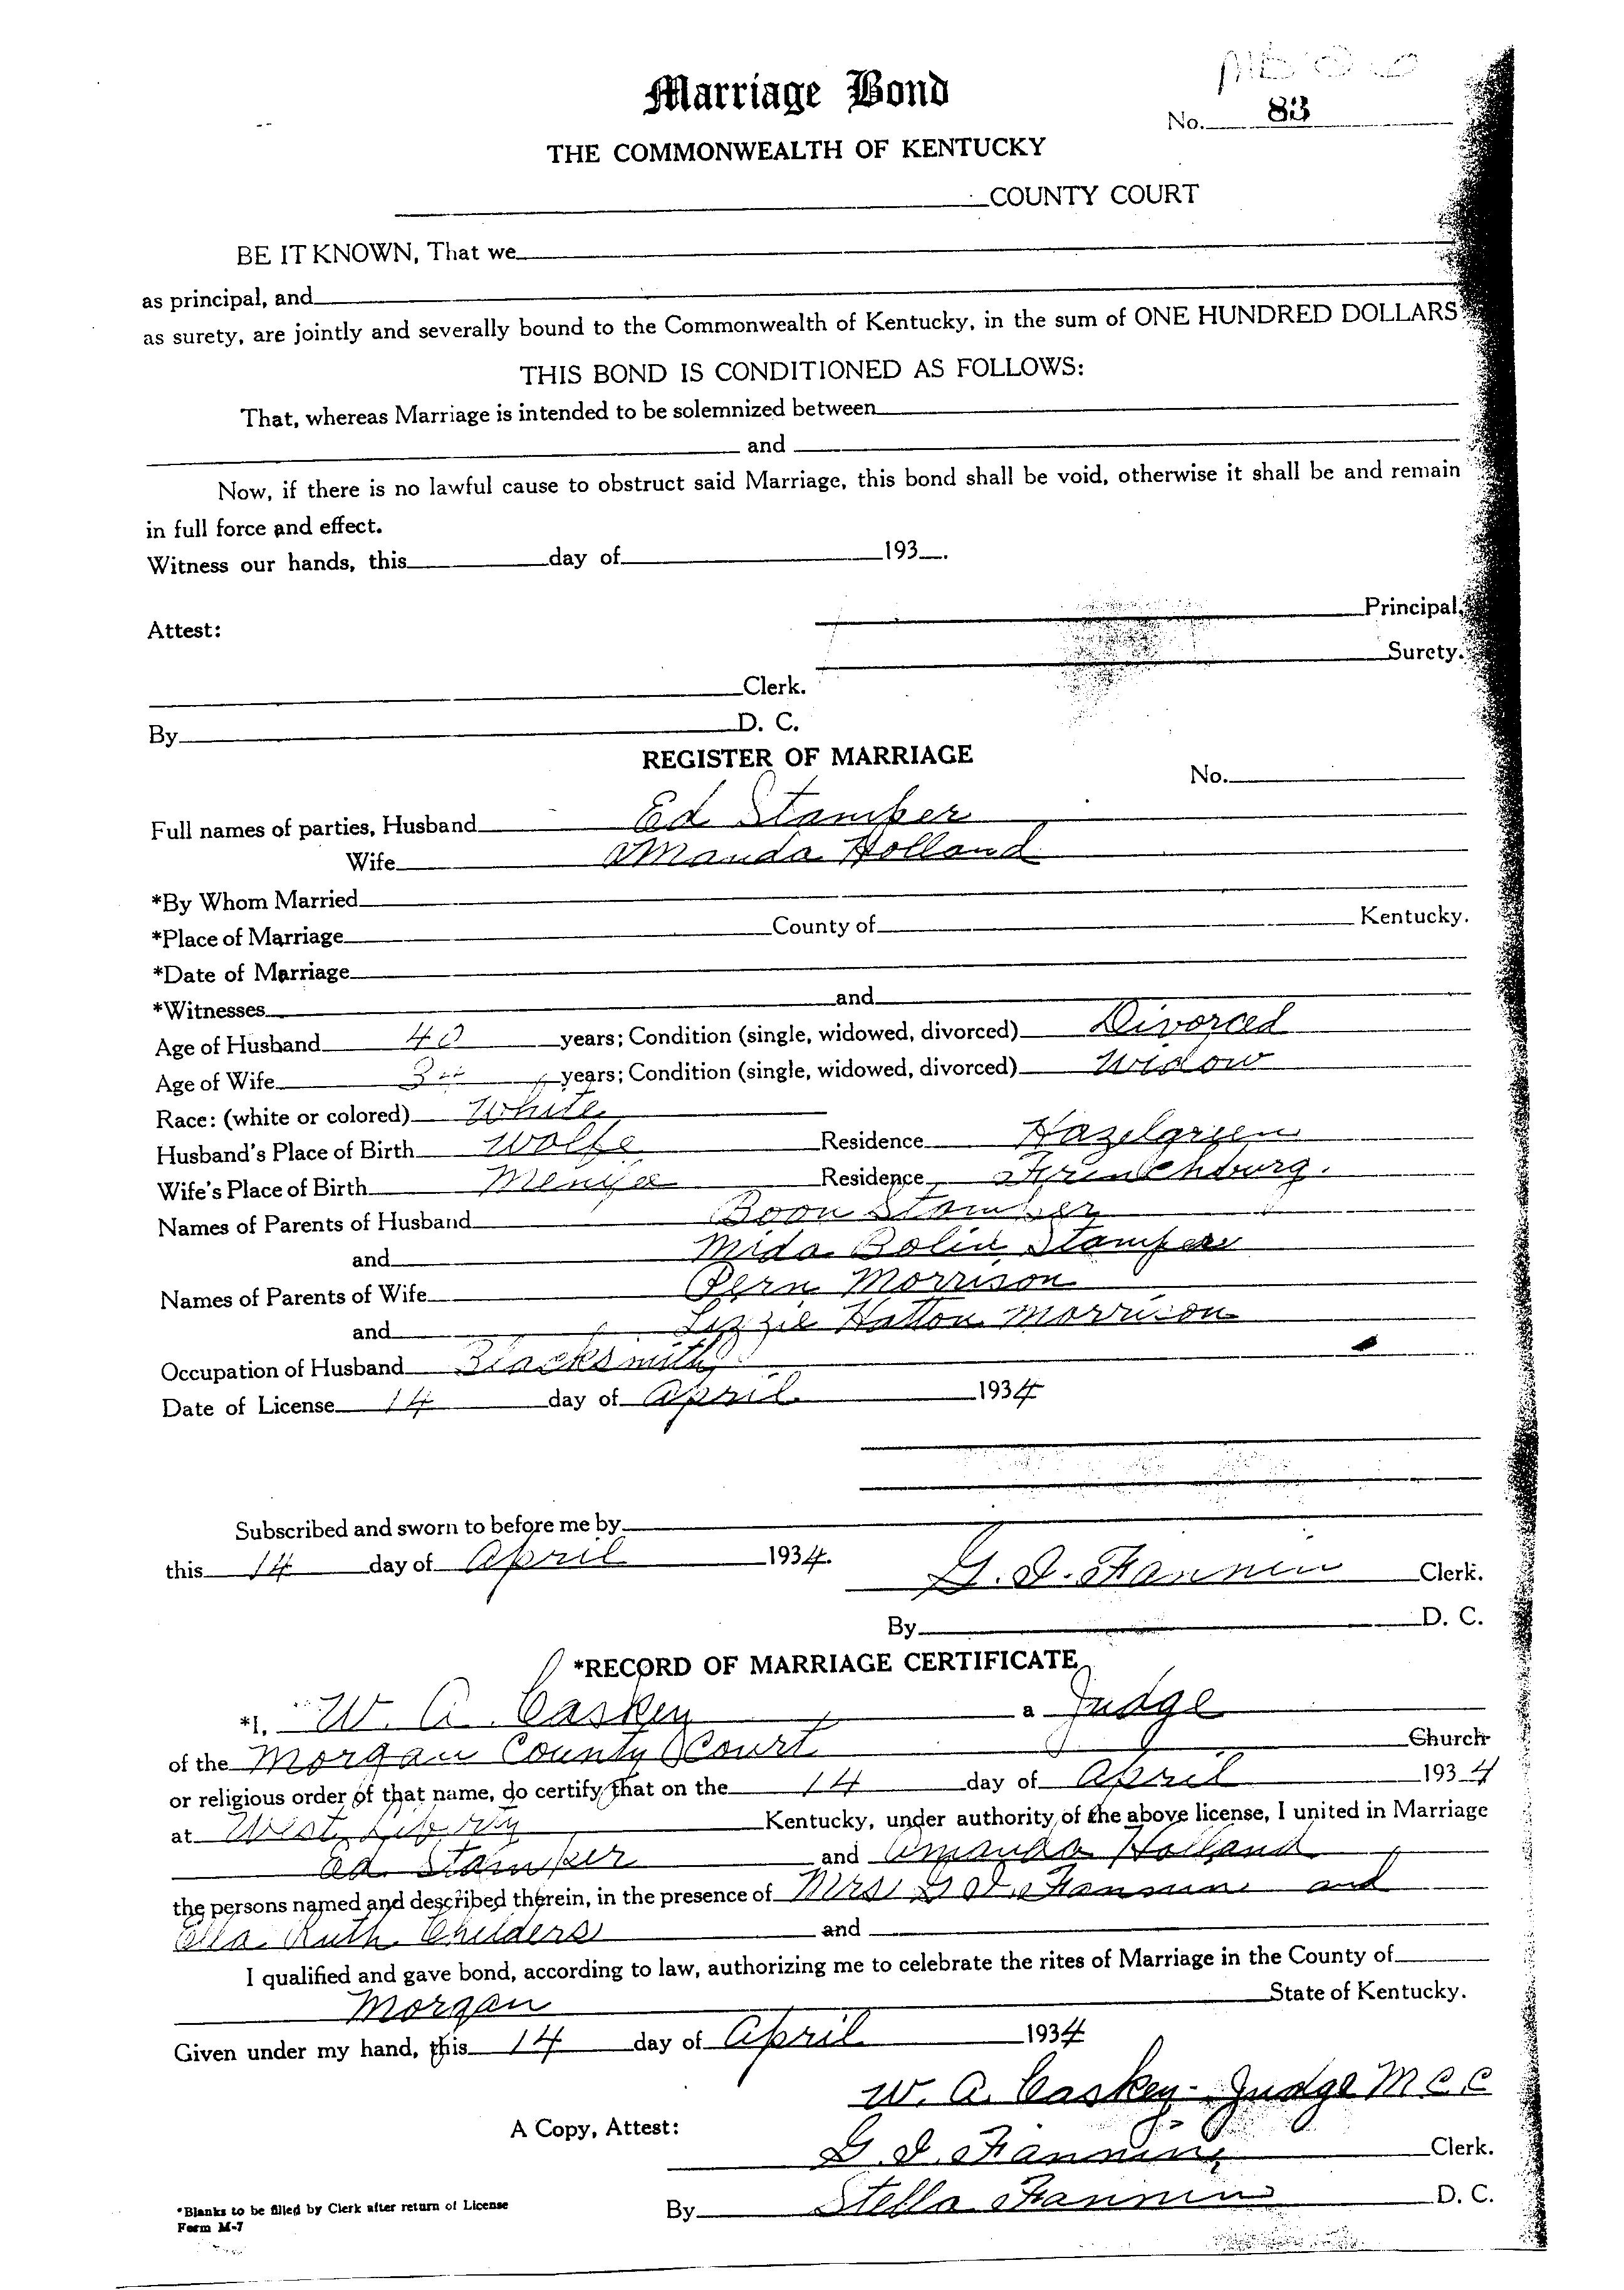 Marriage Bond
No. 83
THE COMMONWEALTH OF KENTUCKY
COUNTY COURT
BE IT KNOWN, That we
as principal, and
as surety, are jointly and severally bound to the Commonwealth of Kentucky, in the sum of ONE HUNDRED DOLLARS
THIS BOND IS CONDITIONED AS FOLLOWS:
That, whereas Marriage is intended to be solemnized between
and
Now, if there is no lawful cause to obstruct said Marriage, this bond shall be void, otherwise it shall be and remain
in full force and effect.
Witness our hands, this day of 193 .
Principal.
Attest:
Surety.
Clerk.
By D. C.
REGISTER OF MARRIAGE
No.
Full names of parties, Husband Ed Stamper
Wife Amanda Holland
*By Whom Married
*Place of Marriage County of Kentucky.
*Date of Marriage
*Witnesses and
Age of Husband 40 years; Condition (single, widowed, divorced) Divorced
Age of Wife years; Condition (single, widowed, divorced) Widow
Race: (white or colored) White
Husband's Place of Birth Wolfe Residence Hazelgreen
Wife's Place of Birth Residence Frenchburg.
Names of Parents of Husband Boon Stamper
and Mida Bolin Stamper
Names of Parents of Wife Morrison
and Lizzie Hatton Morrison
Occupation of Husband Blacksmith
Date of License 14 day of April 1934
Subscribed and sworn to before me by
this 14 day of April 1934. Fannin Clerk.
By D. C.
*RECORD OF MARRIAGE CERTIFICATE
*I, W. A. Caskey a Judge
of the Morgan County Court Church
or religious order of that name, do certify that on the 14 day of April 1934
at West Liberty Kentucky, under authority of the above license, I united in Marriage
Ed Stamper and Amanda Holland
the persons named and described therein, in the presence of Mrs Fannin and
Ella Ruth Childers and
I qualified and gave bond, according to law, authorizing me to celebrate the rites of Marriage in the County of
Morgan State of Kentucky.
Given under my hand, this 14 day of April 1934
W. A. Caskey - Judge M C C
A Copy, Attest:
Fannin Clerk.
By Stella Fannin D. C.
*Blanks to be filled by Clerk after return of License
Form M-7